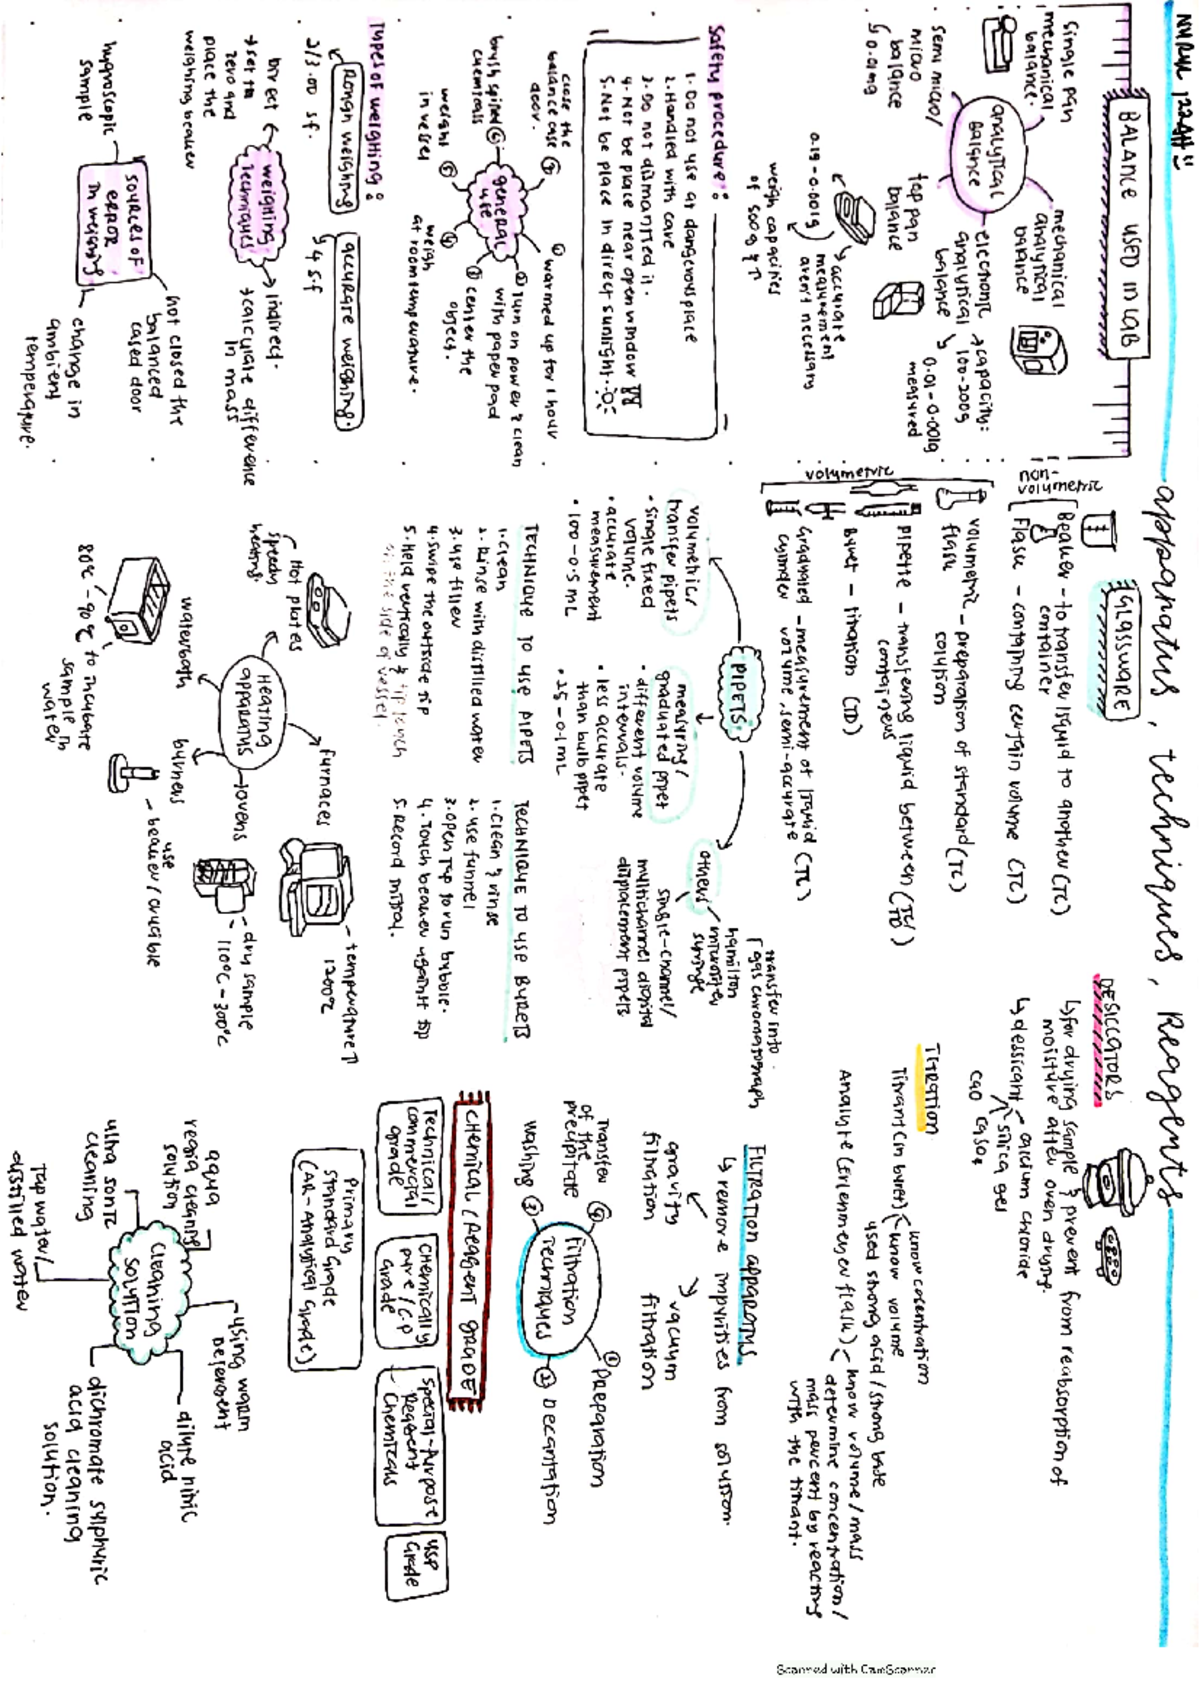 apparatus, techniques, Reagents
BALANCE USED IN LAB
analytical
balance
single pan
mechanical
balance.
mechanical
analytical
balance
semi micro/
micro
balance
↳ 0.01mg
electronic
analytical
balance
→ capacity:
100-200g
↳ 0.01 - 0.001g
measured
top pan
balance
→ accurate
measurement
aren't necessary
0.1g - 0.001g
weigh capacities
of 500g ↑
Safety procedure:
1. Do not use at dangerous place
2. Handled with care
3. Do not dismantled it.
4. Not be place near open window
5. Not be place in direct sunlight.
general
use
① warmed up for 1 hour
② Turn on power & clean
with paper pad
③ center the
object.
④ weigh
at room temperature.
⑤ weight
in vessel
⑥ brush spilled
chemicals
⑦ close the
balance case
door.
Types of weighting:
Rough weighing
2/3.00 sf.
accurate weighing.
↳ 4 s.f
weighing
techniques
Direct
→ set to
zero and
place the
weighing beaker
indirect.
→ calculate difference
in mass
sources of
error
in weighing
hygroscopic
sample
not closed the
balanced
cased door
change in
ambient
temperature.
GLASSWARE
non-
volumetric
Beaker - to transfer liquid to another (TC)
container
Flask - containing certain volume (TC)
volumetric
volumetric - preparation of standard (TC)
flask solution
Pipette - transfering liquid between (TD)
containers
Buret - titration (TD)
Graduated - measurement of liquid (TC)
cylinder volume, semi-accurate
PIPETS
volumetric/
transfer pipets
• single fixed
volume.
• accurate
measurement
• 100-0.5 mL
measuring/
graduated pipet
• different volume
intervals.
• less accurate
than bulb pipet
• 25-0.1mL
others
hamilton
microliter
syringe
transfer into
gas chromatograph
single-channel/
multichannel digital
displacement pipets
TECHNIQUE TO USE PIPETS
1. clean
2. Rinse with distilled water
3. use filler
4. swipe the outside tip
5. Held vertically & tip touch
on the side of vessel.
TECHNIQUE TO USE BURETS
1. clean & rinse
2. use funnel
3. open tap to run bubble.
4. Touch beaker against tip
5. Record initial.
Heating
apparatus
Hot plates
speedy
heating
furnaces
- temperature ↑
1200°C
waterbath
80°C - 90°C to incubate
sample in
water
burners
- use
beaker/crucible
ovens
- dry sample
110°C - 300°C
DESICCATORS
↳ for drying sample & prevent from reabsorption of
moisture after oven drying.
↳ dessicant - calcium chloride
silica gel
CaO CaSO4
TITRATION
Titrant (in buret) know concentration
know volume
used strong acid/strong base
Analyte (Erlenmeyer flask) - know volume/mass
determine concentration/
mass percent by reacting
with the titrant.
FILTRATION apparatus
↳ remove impurities from solution.
gravity
filtration
vacuum
filtration
Filtration
Techniques
① Preparation
② Decantation
③ washing
④ Transfer
of the
precipitate
CHEMICAL/REAGENT GRADE
Technical/
commercial
grade
Chemically
pure/C.P
Grade
Special-Purpose
Reagent
Chemicals
USP
Grade
Primary
Standard Grade
(AR-Analytical Grade)
CLEANING
SOLUTION
aqua
regia cleaning
solution
using warm
Detergent
ultra sonic
cleaning
dilute nitric
acid
Tap water/
distilled water
dichromate sulphuric
acid cleaning
solution.
Scanned with CamScanner